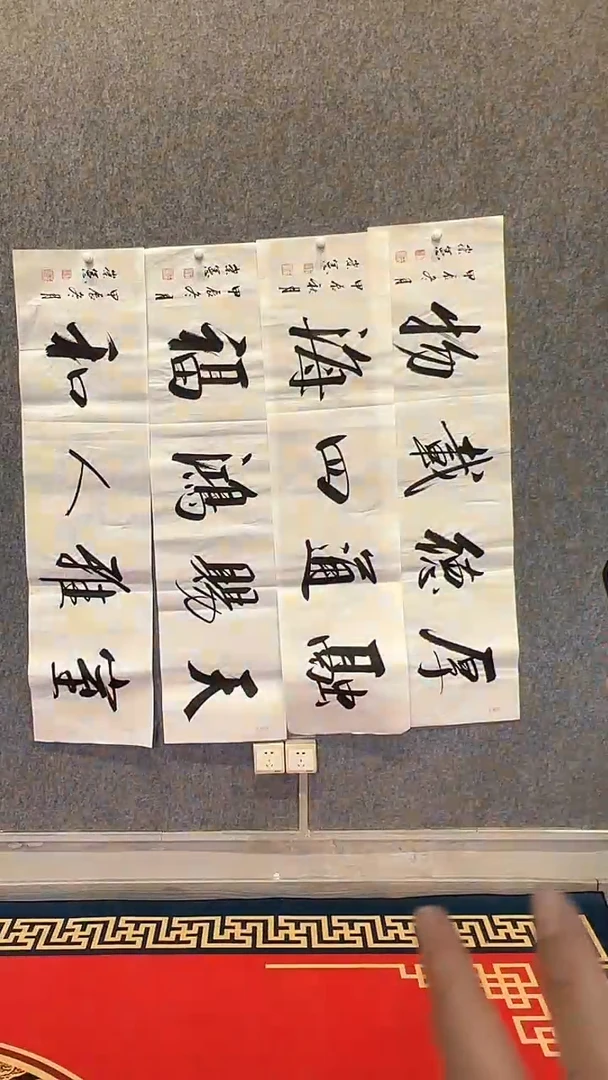 厚德載物
甲辰冬月
融通四海
甲辰秋月
天賜鴻福
甲辰冬月
室雅人和
甲辰冬月